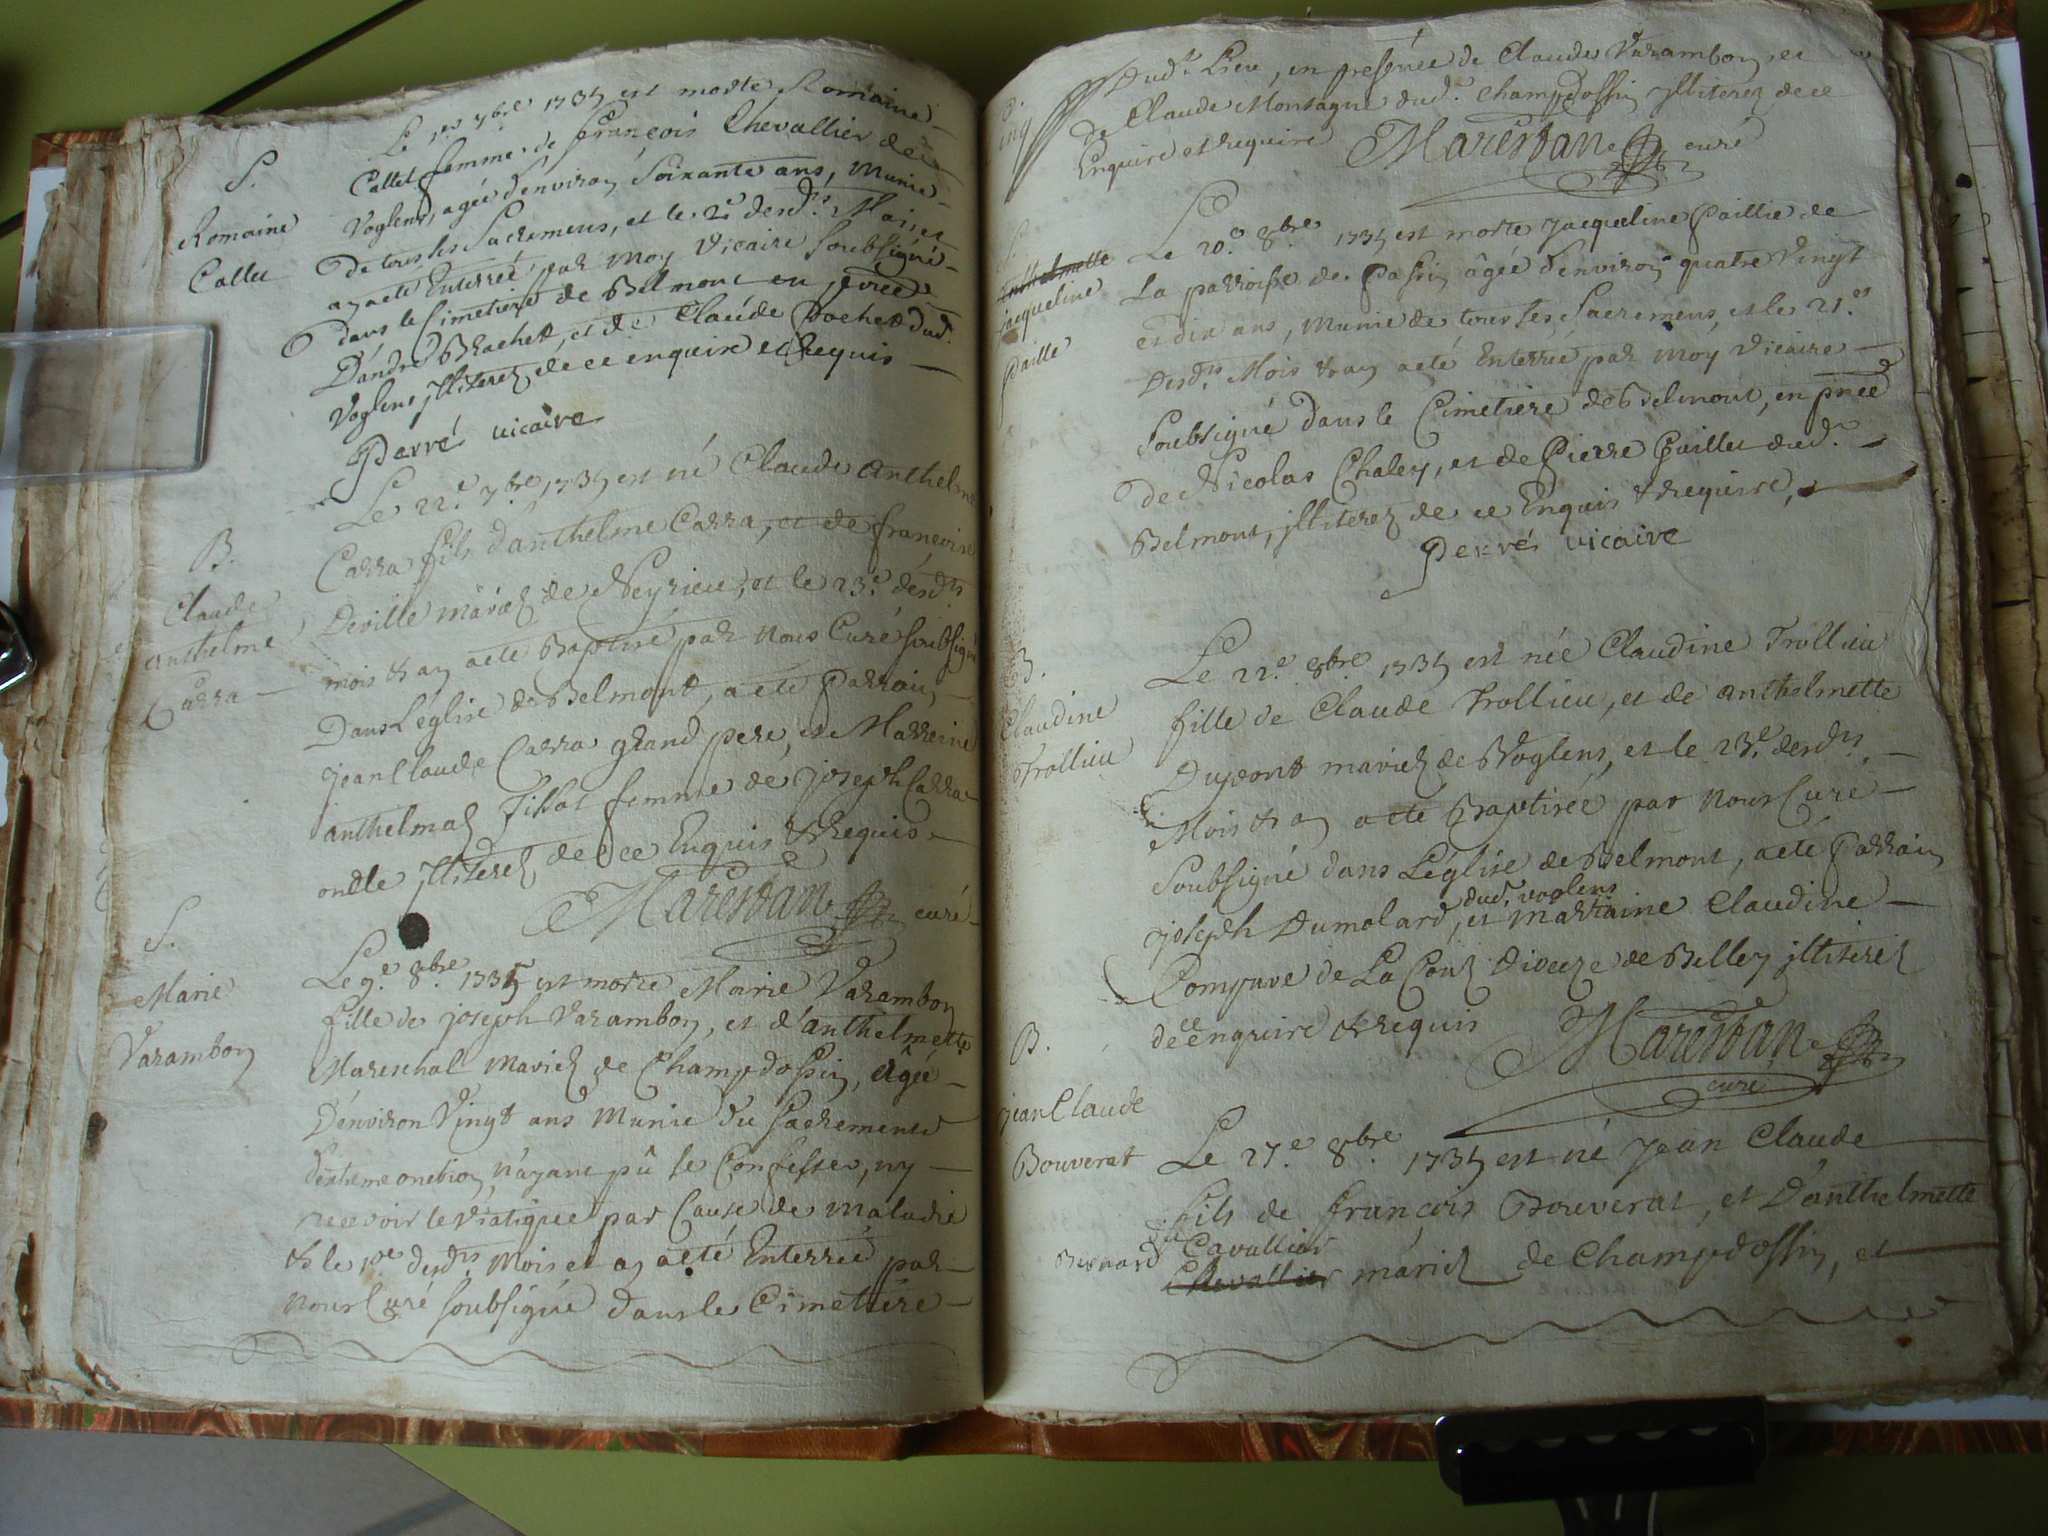 S.
Romaine
Callet
Le 1er 7bre 1735 est morte Romaine
Callet femme de françois Chevallier de
Voglens, agée d'environ Soixante ans, munie
de tous les Sacremens, et le 2e desd.s Mois et
an a eté Enterreé par moy vicaire soubsigné
dans le Cimetiere de Belmont en pñce
D'andré Brachet, et de Claude Rochet dud.
Voglens jlliterez de ce enquire et requis
Perré vicaire
B.
Claude
anthelme
Carra
Le 22.e 7.bre 1735 est né Claude anthelme
Carra fils d'anthelme Carra, et de françoise
Deville mariez de Neyrieu, et le 23.e desd.ts
mois & an a eté Baptisé par nous Curé soubsigné
Dans L'eglise de Belmont, a eté Parrain
jean Claude Carra grand pere, et Marreine
anthelmaz fillot femme de joseph Carra
oncle jlliterez de ce Enquis & Requis
Marestan curé
S.
Marie
Varambon
Le 9.e 8.bre 1735 est morte Marie Varambon
fille de joseph Varambon, et d'anthelmette
Mareschal mariez de Champdossin, agée
D'environ Vingt ans munie du sacrements
d'extreme onction, n'ayant pû se Confesser, ny
recevoir le viatique par Cause de maladie
& le 10e desd.ts Mois et an a eté Enterreé par
nous Curé soubsigné dans le Cimetiére
Dud.t Lieu, en presence de Claude Varambon et
de Claude Montagne dud.t champdossin jlliterez de ce
Enquire et require Marestan curé
S.
anthelmette
jacqueline
Paille
Le 20.e 8.bre 1735 est morte jacqueline Paillie de
La parroisse de Passin âgée d'environ quatre Vingt
et dix ans, munie de tous les Sacremens, et le 21.e
Desd.ts Mois & an a eté Enterreé par moy Vicaire
soubsigné dans le Cimetiere de Belmont, en pñce
de Nicolas Chaley, et de Pierre Paillet dud.t
Belmont, jlliterez de ce Enquis & require,
Perré vicaire
B.
Claudine
Trollieu
Le 22.e 8bre 1735 est née Claudine Trollieu
fille de Claude Trollieu, et de anthelmette
Dupont mariez de Voglens, et le 23.e desd.ts
Mois & an a eté Baptiseé par nous Curé
Soubsigné dans L'église de Belmont, a eté Parrain
dud. voglens
joseph Dumolard, et marraine Claudine
Compare de La Couz dioceze de Belley jlliterez
de ce enquire & requis Marestan
curé
B.
jean Claude
Bouverat
Le 27.e 8bre 1735 est né Jean Claude
fils de françois Bouverat, et d'anthelmette
Bernard
Cavallier
Chevallier mariez de Champdossin, et